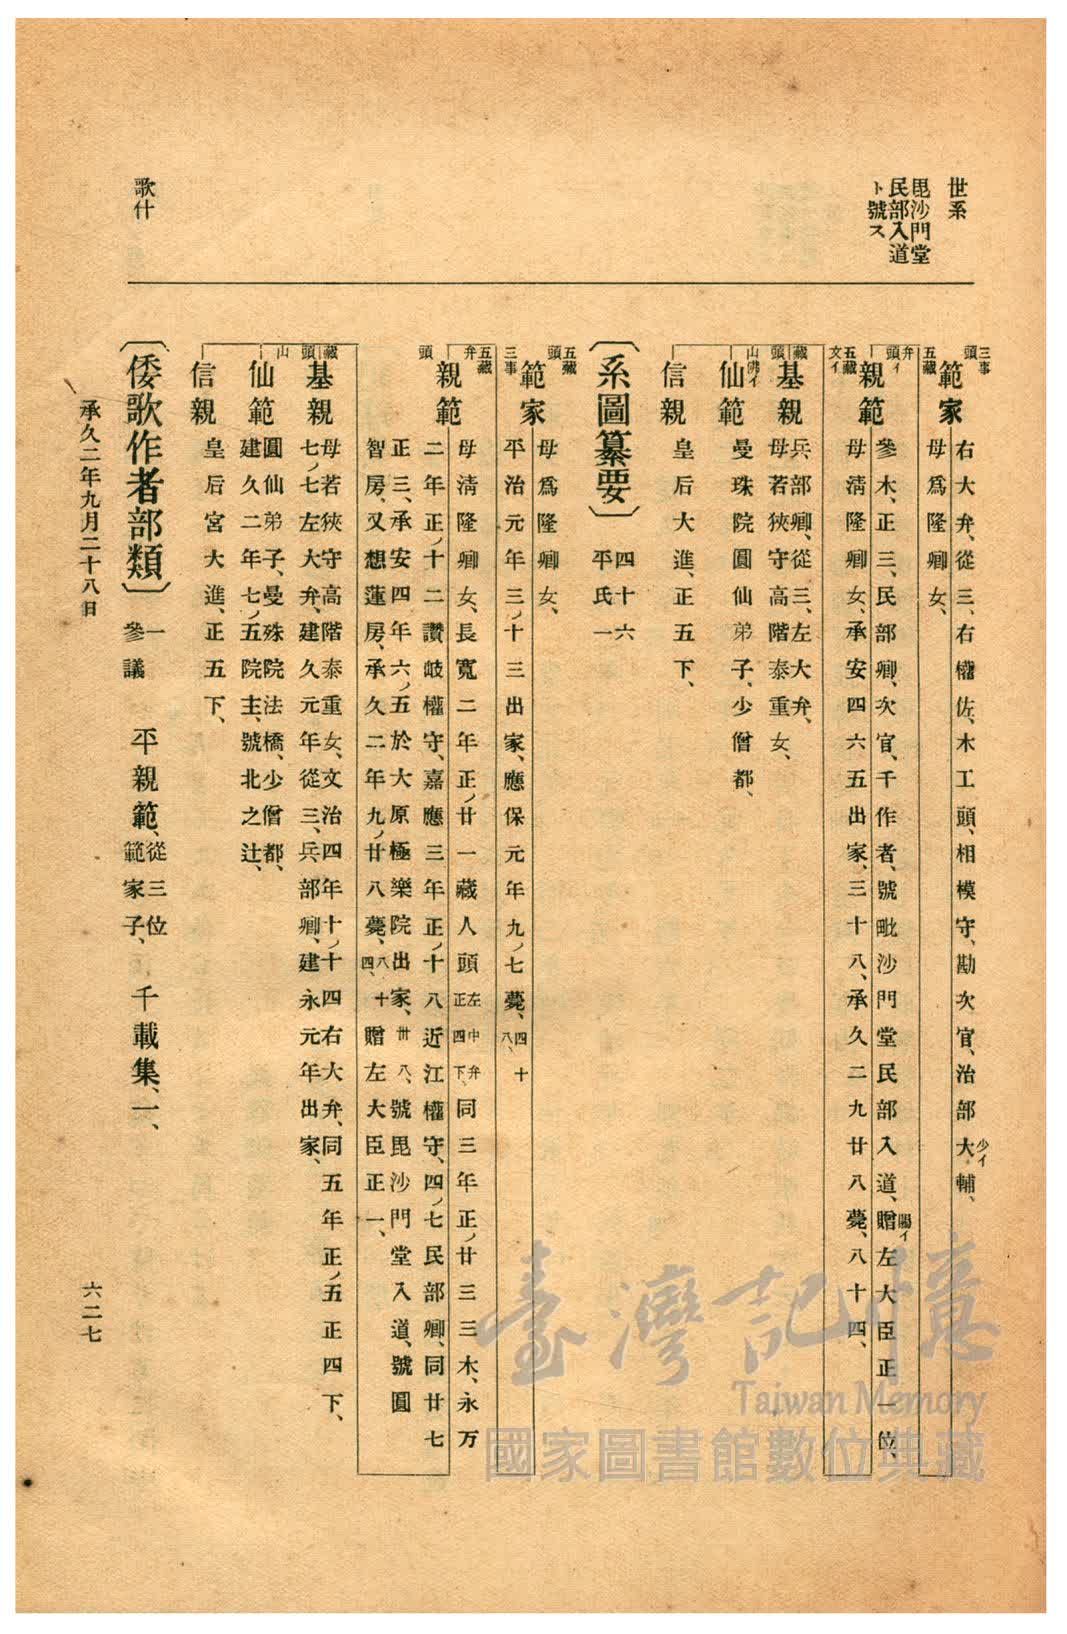 世系
毘沙門堂
民部入道
ト號ス
歌什
三事
頭
範家
右大弁、從三、右權佐、木工頭、相模守、勘次官、治部大輔、
少イ
五藏
母爲隆卿女、
弁イ
頭
五藏
文イ
親範
參木、正三、民部卿、次官、千作者、號毗沙門堂民部入道、贈左大臣正一位、
賜イ
母淸隆卿女、承安四六五出家、三十八、承久二九廿八薨、八十四、
藏
頭
基親
兵部卿、從三、左大弁、
母若狹守高階泰重女、
山
佛イ
仙範
曼珠院圓仙弟子、少僧都、
信親
皇后大進、正五下、
〔系圖纂要〕
四十六
平氏一
五藏
頭
範家
母爲隆卿女、
三事
平治元年三ノ十三出家、應保元年九ノ七薨、四十八、
五藏
弁
頭
親範
母淸隆卿女、長寬二年正ノ廿一藏人頭左中弁正四下、同三年正ノ廿三三木、永万
二年正ノ十二讚岐權守、嘉應三年正ノ十八近江權守、四ノ七民部卿、同廿七
正三、承安四年六ノ五於大原極樂院出家、卅八、號毘沙門堂入道、號圓
智房、又想蓮房、承久二年九ノ廿八薨、八十四、贈左大臣正一、
藏
頭
基親
母若狹守高階泰重女、文治四年十ノ十四右大弁、同五年正ノ五正四下、
七ノ七左大弁、建久元年從三、兵部卿、建永元年出家、
山
仙範
圓仙弟子、曼殊院法橋、少僧都、
建久二年七ノ五院主、號北之辻、
信親
皇后宮大進、正五下、
〔倭歌作者部類〕
一
參議
平親範、從三位
範家子、
千載集、一、
承久二年九月二十八日
六二七
臺灣記憶
Taiwan Memory
國家圖書館數位典藏